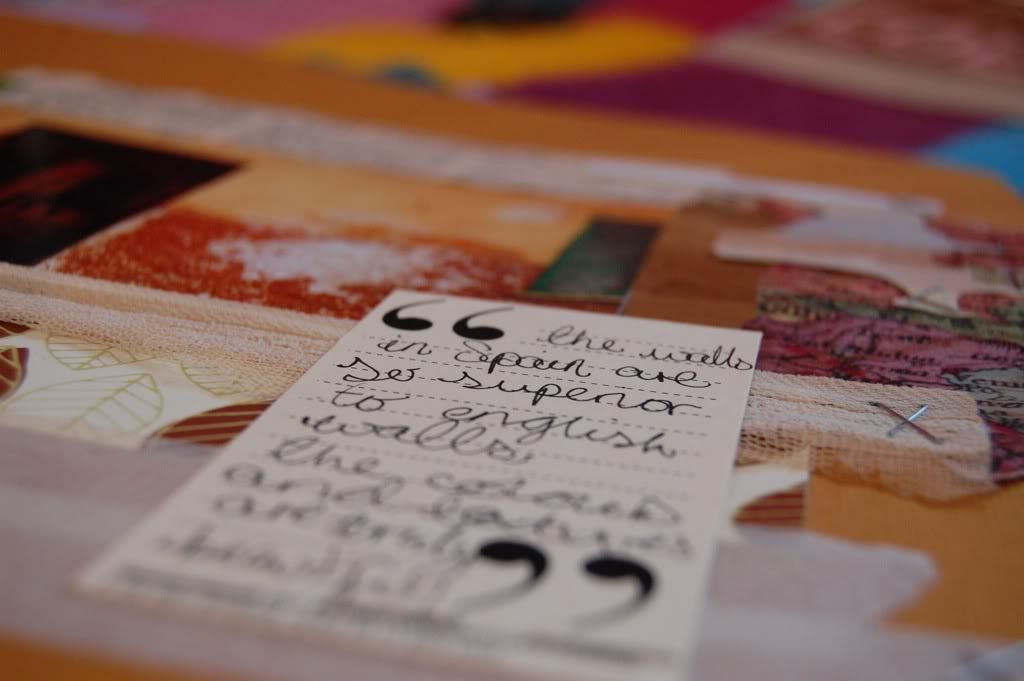 “ the walls
in Spain are
so superior
to english
walls,
the colours
and
are truly
beautiful! ”